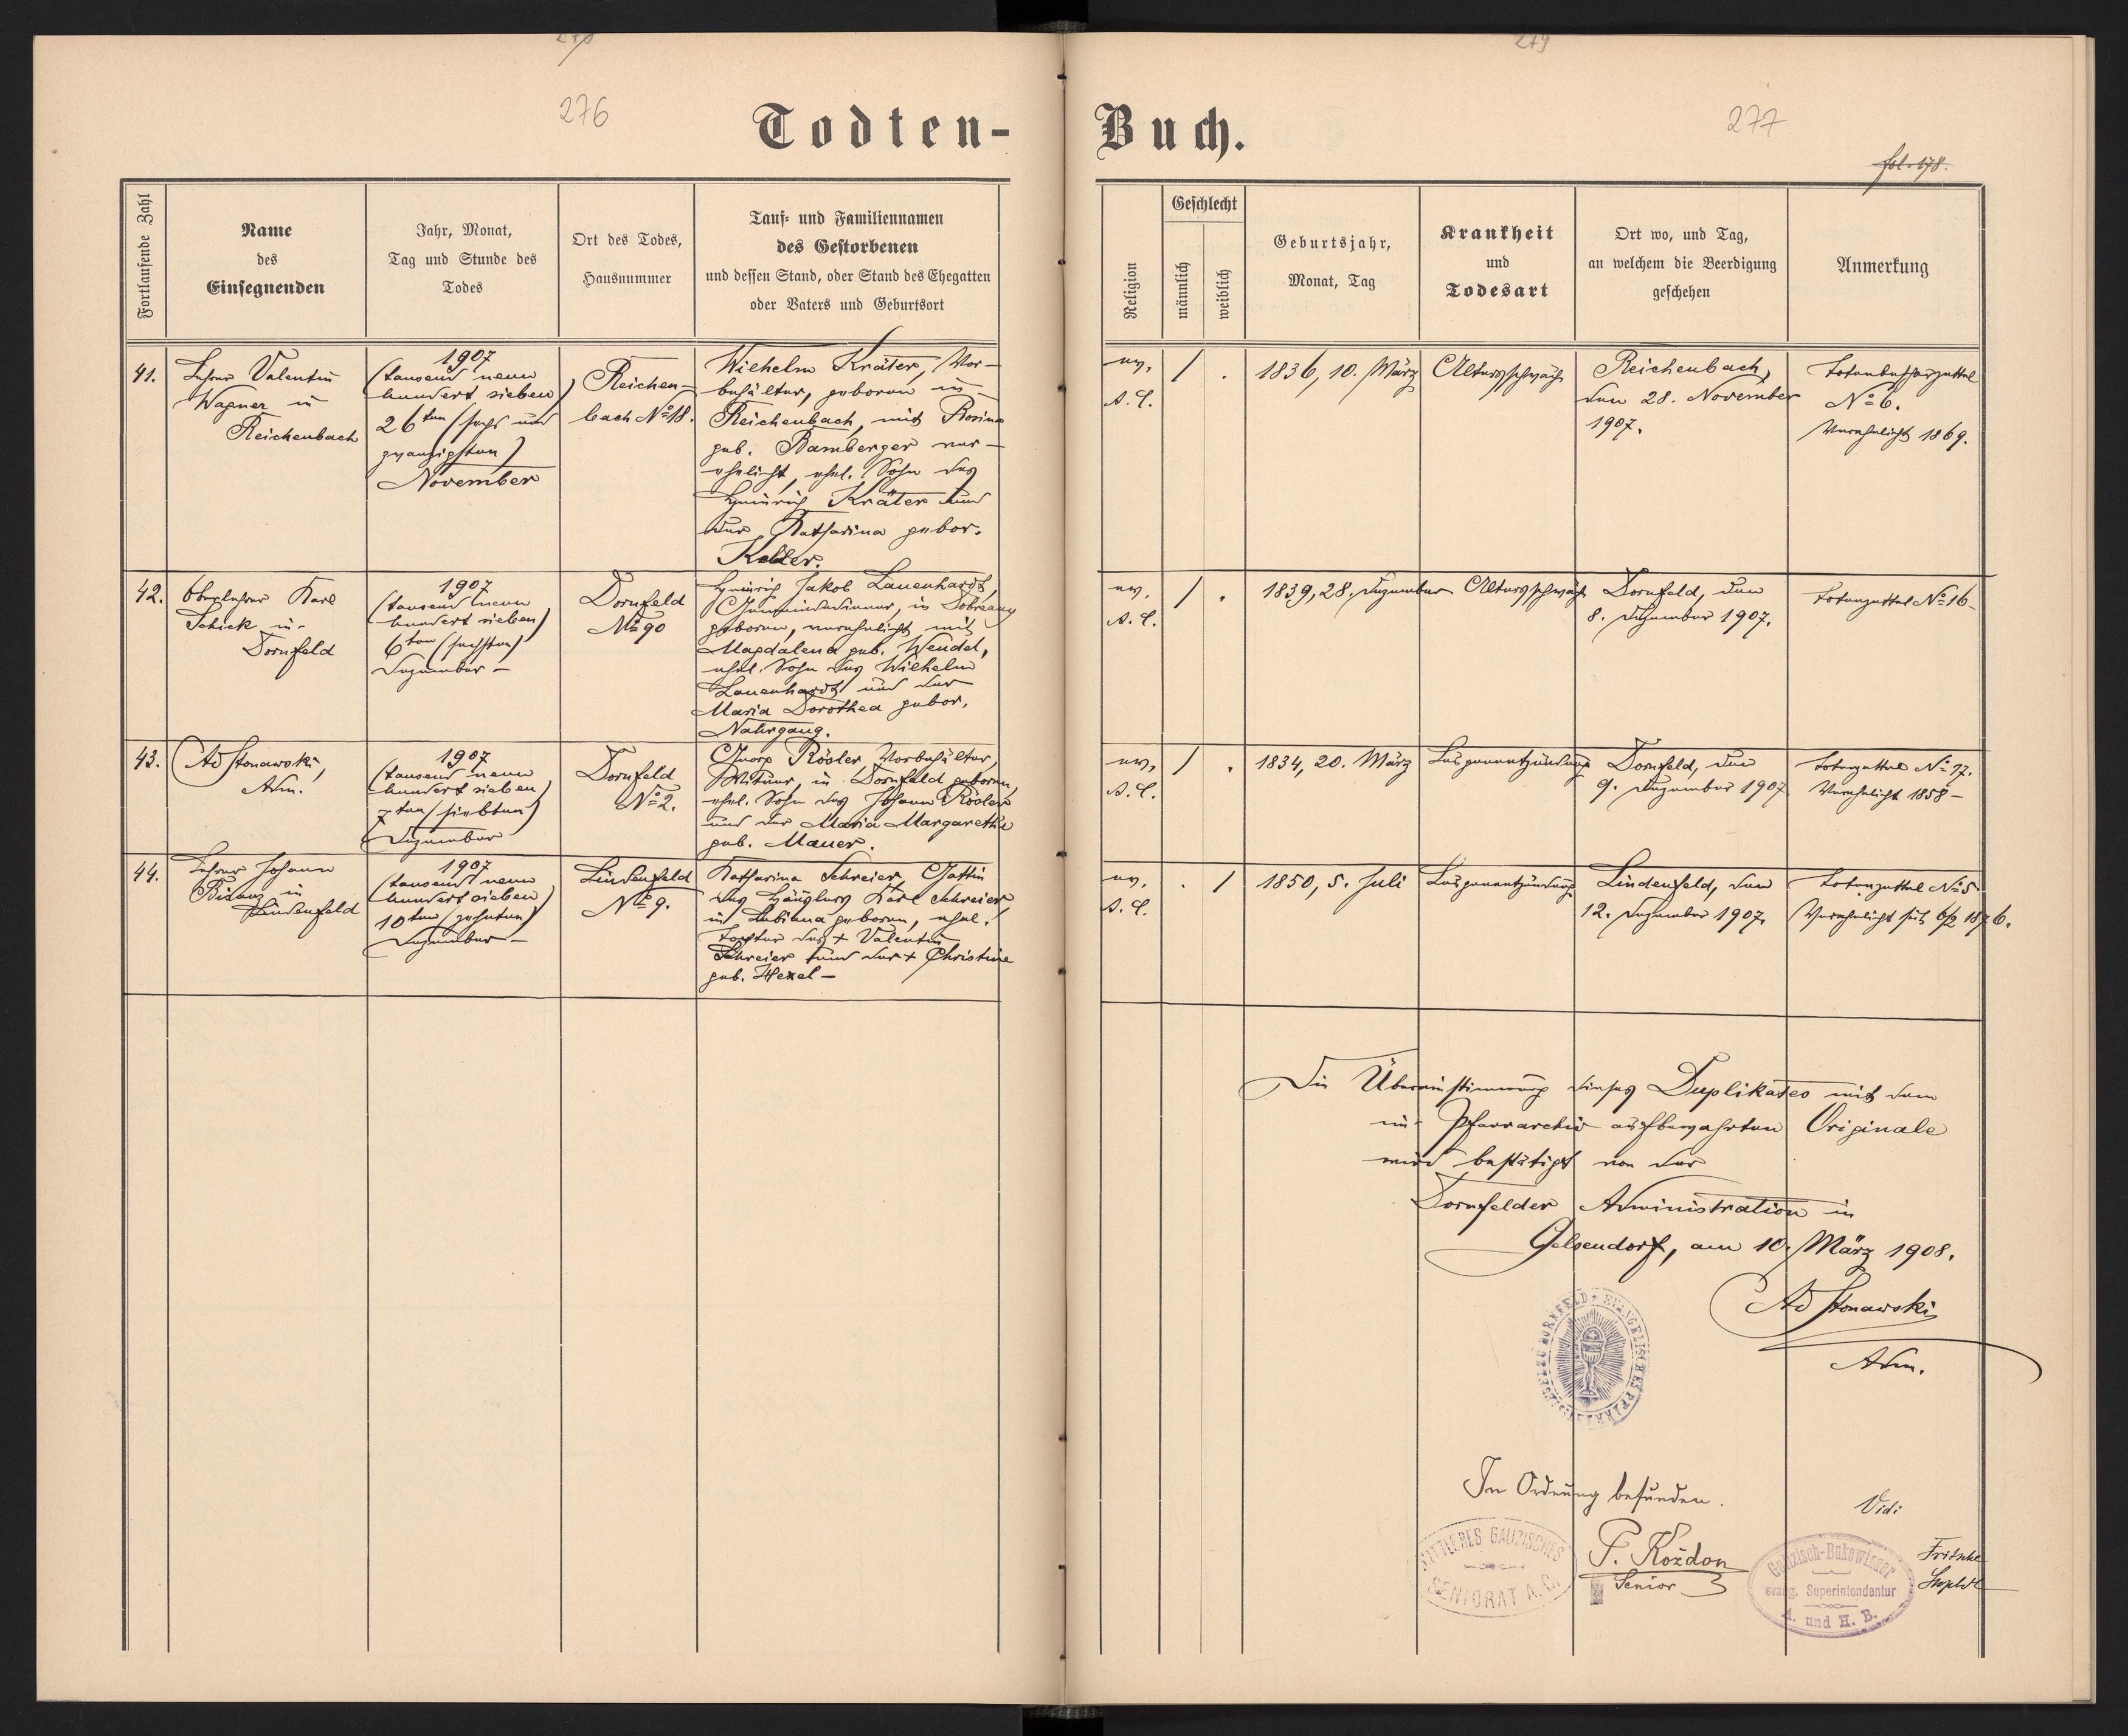 276
277
Todten-Buch.
fol. 178.
Fortlaufende Zahl
Name
des
Einsegnenden
Jahr, Monat,
Tag und Stunde des
Todes
Ort des Todes,
Hausnummer
Tauf- und Familiennamen
des Gestorbenen
und dessen Stand, oder Stand des Ehegatten
oder Vaters und Geburtsort
Religion
Geschlecht
männlich
weiblich
Geburtsjahr,
Monat, Tag
Krankheit
und
Todesart
Ort wo, und Tag,
an welchem die Beerdigung
geschehen
Anmerkung
41.
Lehrer Valentin
Wagner in
Reichenbach
1907
(tausend neun
hundert sieben)
26ten (sechs und
zwanzigsten)
November
Reichen-
bach No 18.
Wilhelm Kräter, Vor-
behälter, geboren in
Reichenbach, mit Rosina
geb. Bamberger ver-
ehelicht, ehel. Sohn des
Heinrich Kräter und
der Katharina gebor.
Koller.
ev.
A. C.
1 .
1836, 10. März
Altersschwäche
Reichenbach,
den 28. November
1907.
Totenbeschauzettel
No 6.
Verehelicht 1869.
42.
Oberlehrer Karl
Schick in
Dornfeld
1907
(tausend neun
hundert sieben)
6ten (sechsten)
Dezember –
Dornfeld
No 90
Heinrich Jakob Lauenhardt,
Gemeindediener, in Dobrzany
geboren, verehelicht mit
Magdalena geb. Wendel,
ehel. Sohn des Wilhelm
Lauenhardt und der
Maria Dorothea gebor.
Nahrgang.
ev.
A. C.
1 .
1839, 28. Dezember
Altersschwäche
Dornfeld, den
8. Dezember 1907.
Totenzettel No 16 –
43.
Ad Stonawski,
Adm.
1907
(tausend neun
hundert sieben)
7ten (siebten)
Dezember
Dornfeld
No 2.
Georg Rösler, Vorbehälter,
Witwer, in Dornfeld geboren,
ehel. Sohn des Johann Rösler
und der Maria Margaretha
geb. Mauer.
ev.
A. C.
1 .
1834, 20. März
Lungenentzündung
Dornfeld, den
9. Dezember 1907
Totenzettel No 17.
Verehelicht 1858 –
44.
Lehrer Johann
Bisanz in
Lindenfeld
1907
(tausend neun
hundert sieben)
10ten (zehnten)
Dezember –
Lindenfeld
No 9.
Katharina Schreier, Gattin
des Häuslers Karl Schreier
in Lubiana geboren, ehel.
Tochter des + Valentin
Schreier und der + Christine
geb. Hexel –
ev.
A. C.
. 1
1850, 5. Juli
Lungenentzündung
Lindenfeld, den
12. Dezember 1907.
Totenzettel No 5.
Verehelicht seit 6/2 1876.
Die Übereinstimmung dieses Duplikates mit dem
im Pfarrarchiv aufbewahrten Originale
wird bestätigt von der
Dornfelder Administration in
Gelsendorf, am 10. März 1908.
Ad Stonawski
Adm.
In Ordnung befunden.
Vidi
MITTLERES GALIZISCHES
SENIORAT A. C.
P. Kożdon
Senior
Galizisch-Bukowinaer
evang. Superintendentur
A. und H. B.
Fritsche